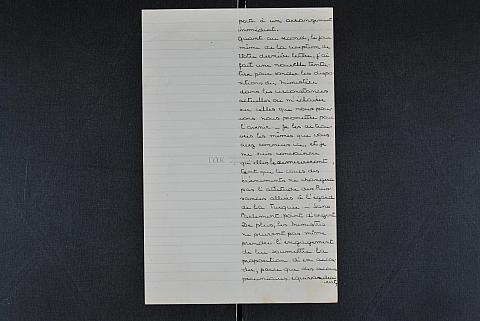 parti à un arrangement
immédiat.
Quant au second, le jour
même de la réception de
Votre dernière lettre, j'ai
fait une nouvelle tenta-
tive pour sonder les dispo-
sitions du Ministère
dans les circonstances
actuelles ou m'éclairer
sur celles que nous pou-
vons nous promettre pour
l'avenir — Je les ai trou-
vées les mêmes que vous
avez connues ici, et je
me suis convaincu
qu'elles le demeureront,
tant que le cours des
événements ne changera
pas l'attitude des Puis-
sances alliées à l'égard
de la Turquie — Sans
Parlement, point d'argent
De plus, les Ministres
ne peuvent pas même
prendre l'engagement
de lui soumettre la
proposition d'en accor-
der, parce que des secours
pécuniaires équivaudrai-
ent